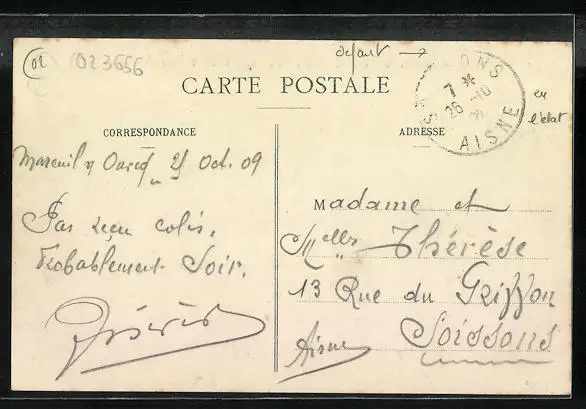 02
023656
défaut →
en
l'état
CARTE POSTALE
SOISSONS
7 *
26 -10
AISNE
CORRESPONDANCE
ADRESSE
Mareuil s/ Ourcq 25 Oct. 09
Pas reçu colis.
Probablement Soir.
Madame et
Melles Thérèse
13 Rue du Griffon
Soissons
Aisne